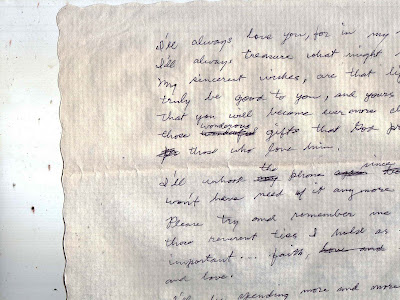 I'll always love you, for in my
I'll always treasure what might
My sincerest wishes, are that
truly be good to you, and yours
that you will become ever more
wonderous
those wonderful gifts that God
for those who love him.
the since
I'll unhook phone
won't have need of it any more
Please try and remember me
those reverent ties I held as
important... faith, love and
and love.
I'll be spending more and more